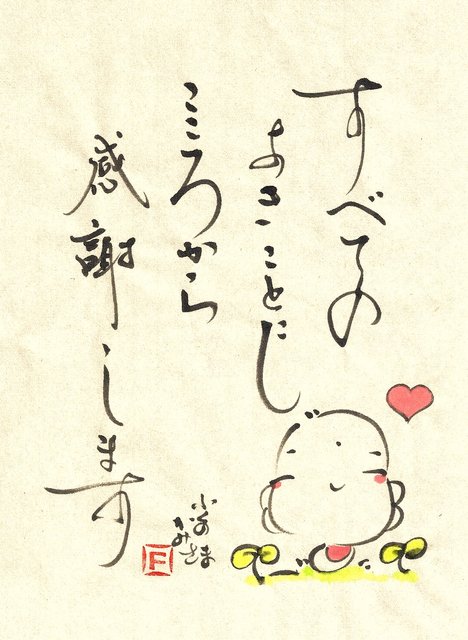 すべての
よきことに
こころから
感謝します
かみさま